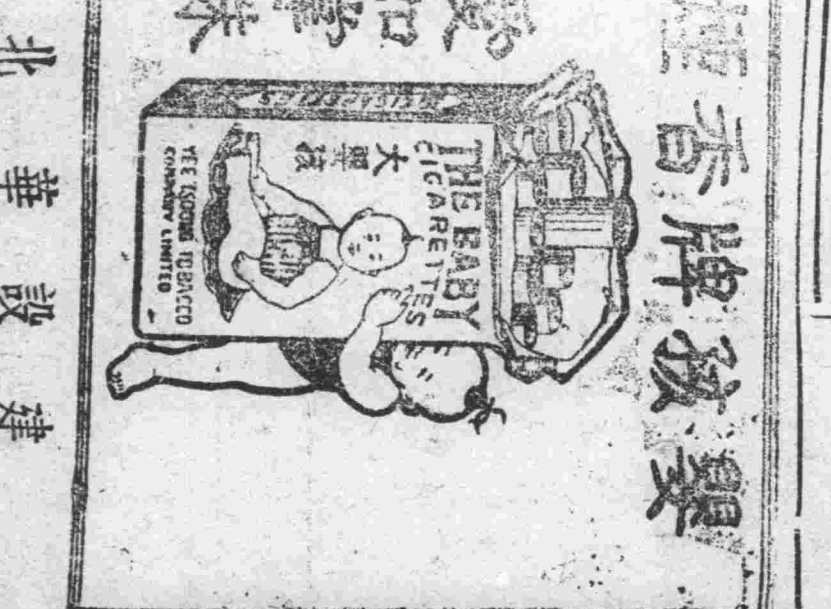 嬰孩牌香煙
THE BABY
CIGARETTES
大嬰孩
YEE TSOONG TOBACCO
COMPANY LIMITED
CIGARETTES
建設華北